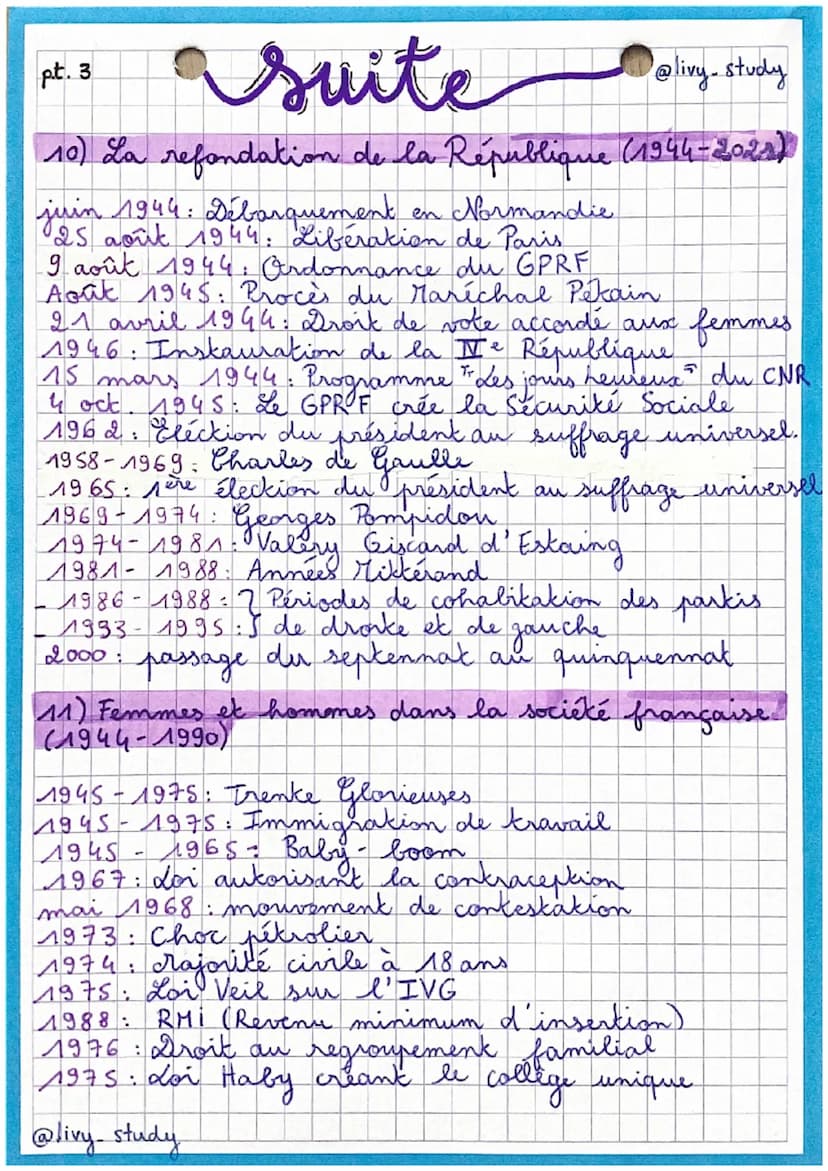 pt. 3
suite
@livy_study
10) La refondation de la République (1944-2021)
juin 1944: Débarquement en Normandie
25 août 1944: Libération de Paris
9 août 1944: Ordonnance du GPRF
Août 1945: Procès du Maréchal Pétain
21 avril 1944: Droit de vote accordé aux femmes
1946: Instauration de la IVe République
15 mars 1944: Programme "Les jours heureux" du CNR
4 oct. 1945: Le GPRF crée la Sécurité Sociale
1962: Eléction du président au suffrage universel.
1958-1969: Charles de Gaulle
1965: 1ère élection du président au suffrage universel
1969-1974: Georges Pompidou
1974-1981: Valéry Giscard d'Estaing
1981-1988: Années Mittérand
- 1986-1988: } Périodes de cohabitation des partis
- 1993-1995: } de droite et de gauche
2000: passage du septennat au quinquennat
11) Femmes et hommes dans la société française
(1944-1990)
1945-1975: Trente Glorieuses
1945-1975: Immigration de travail
1945-1965: Baby-boom
1967: Loi autorisant la contraception
mai 1968: mouvement de contestation
1973: Choc pétrolier
1974: Majorité civile à 18 ans
1975: Loi Veil sur l'IVG
1988: RMi (Revenu minimum d'insertion)
1976: Droit au regroupement familial
1975: Loi Haby créant le collège unique
@livy_study